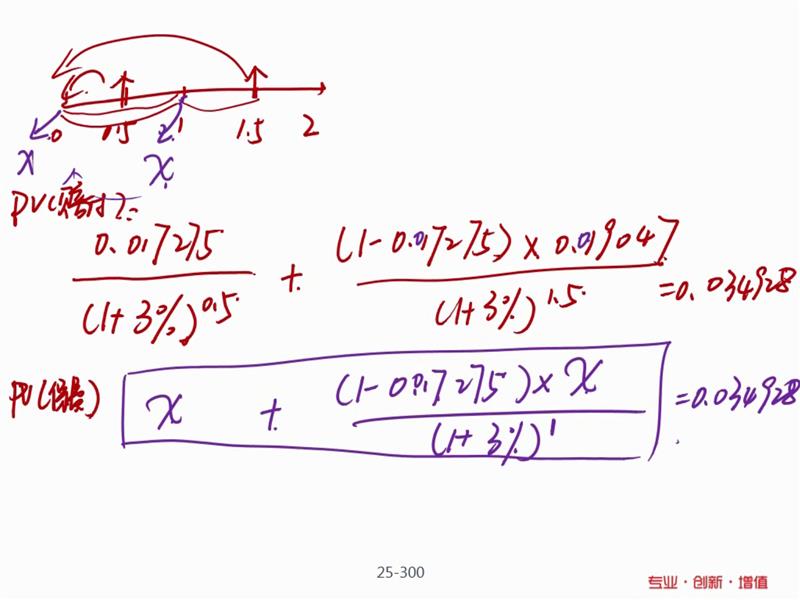 0 0.5 1 1.5 2
x x
PV(赔付):
0.017275 / (1+3%)^0.5 + (1-0.017275)×0.019047 / (1+3%)^1.5 =0.034928
PV(保费) x + (1-0.017275)×x / (1+3%)^1 =0.034928
25-300
专业·创新·增值